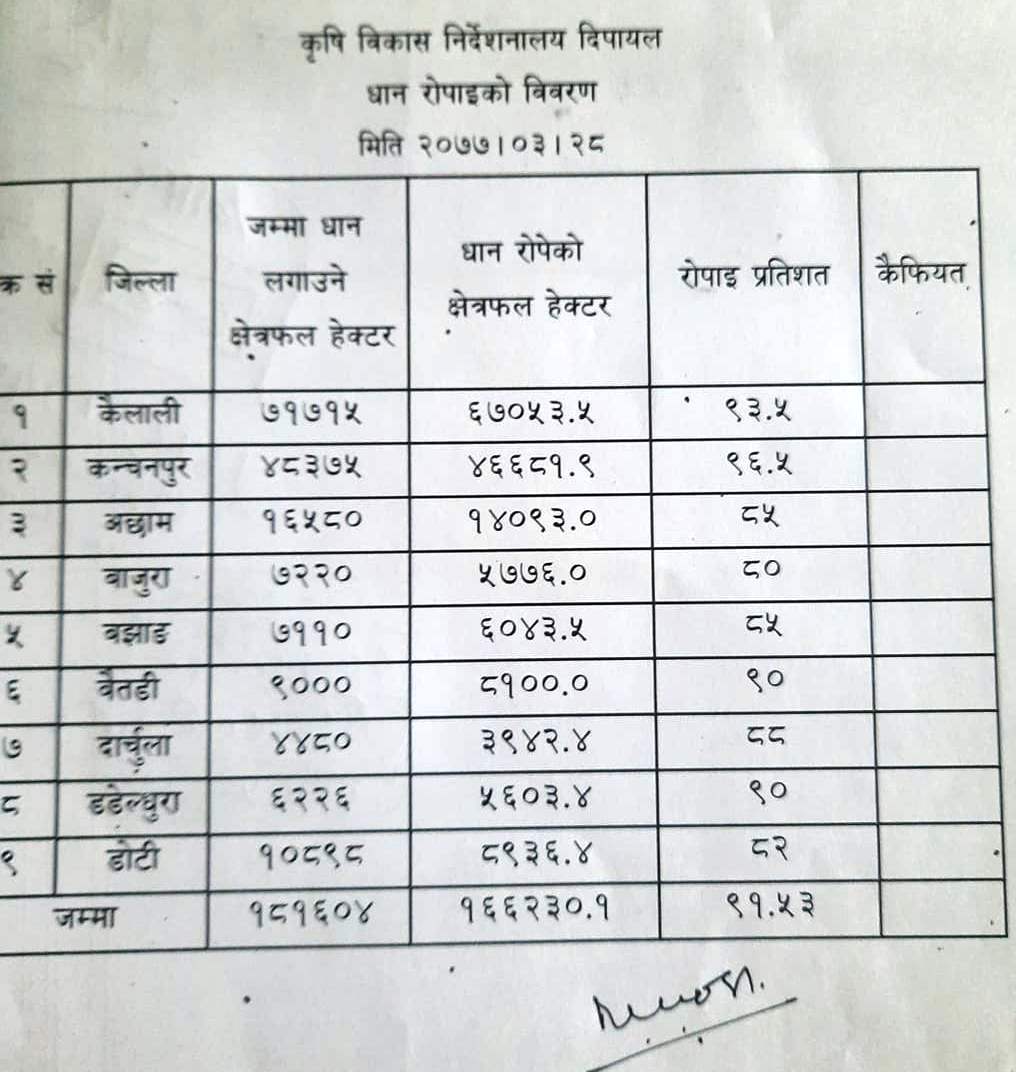 कृषि विकास निर्देशनालय दिपायल
धान रोपाइको विवरण
मिति २०७७।०३।२८
क्र सं जिल्ला जम्मा धान लगाउने क्षेत्रफल हेक्टर धान रोपेको क्षेत्रफल हेक्टर रोपाइ प्रतिशत कैफियत
१ कैलाली ७१७१५ ६७०५३.५ ९३.५
२ कन्चनपुर ४८३७५ ४६६८१.९ ९६.५
३ अछाम १६५८० १४०९३.० ८५
४ बाजुरा ७२२० ५७७६.० ८०
५ बझाङ ७११० ६०४३.५ ८५
६ बैतडी ९००० ८१००.० ९०
७ दार्चुला ४४८० ३९४२.४ ८८
८ डडेल्धुरा ६२२६ ५६०३.४ ९०
९ डोटी १०८९८ ८९३६.४ ८२
जम्मा १८१६०४ १६६२३०.१ ९१.५३